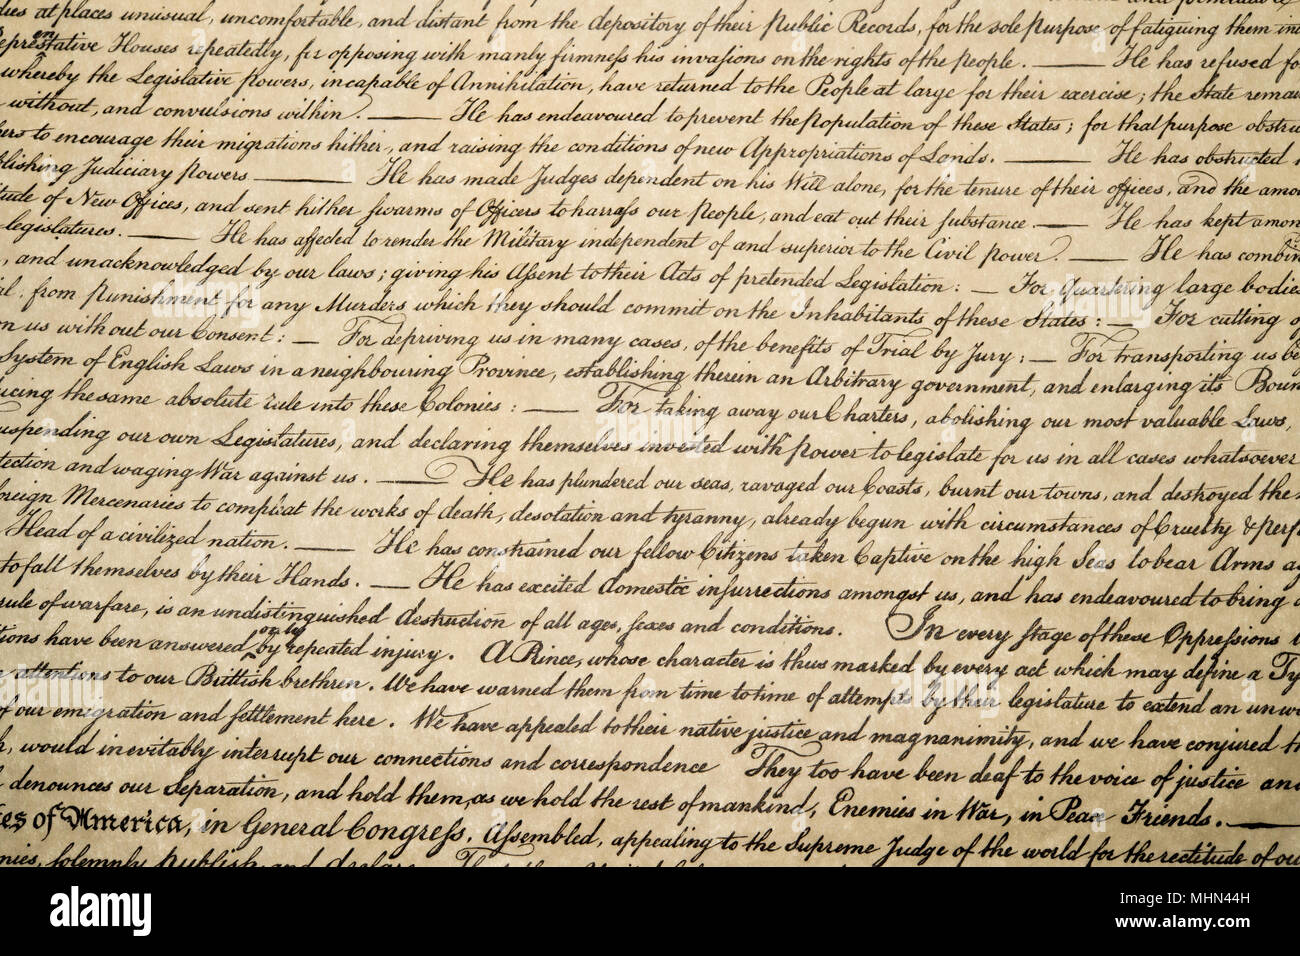 dies at places unusual, uncomfortable, and distant from the depository of their Public Records, for the sole purpose of fatiguing them in
Represtative Houses repeatedly, for opposing with manly firmness his invasions on the rights of the people. — He has refused fo
en
whereby the Legislative powers, incapable of Annihilation, have returned to the People at large for their exercise; the State remai
without, and convulsions within. — He has endeavoured to prevent the population of these States; for that purpose obstru
hers to encourage their migrations hither, and raising the conditions of new Appropriations of Lands. — He has obstructed
blishing Judiciary powers — He has made Judges dependent on his Will alone, for the tenure of their offices, and the amo
itude of New Offices, and sent hither swarms of Officers to harrass our people, and eat out their substance. — He has kept amon
legislatures. — He has affected to render the Military independent of and superior to the Civil power. — He has combin
, and unacknowledged by our laws; giving his Assent to their Acts of pretended Legislation: — For Quartering large bodies
al, from punishment for any Murders which they should commit on the Inhabitants of these States: — For cutting o
on us without our Consent: — For depriving us in many cases, of the benefits of Trial by Jury: — For transporting us be
System of English Laws in a neighbouring Province, establishing therein an Arbitrary government, and enlarging its Boun
ucing the same absolute rule into these Colonies: — For taking away our Charters, abolishing our most valuable Laws,
uspending our own Legislatures, and declaring themselves invested with power to legislate for us in all cases whatsoever
tection and waging War against us. — He has plundered our seas, ravaged our Coasts, burnt our towns, and destroyed the
oreign Mercenaries to compleat the works of death, desolation and tyranny, already begun with circumstances of Cruelty & perf
Head of a civilized nation. — He has constrained our fellow Citizens taken Captive on the high Seas to bear Arms ag
to fall themselves by their Hands. — He has excited domestic insurrections amongst us, and has endeavoured to bring
rule of warfare, is an undistinguished destruction of all ages, sexes and conditions. In every stage of these Oppressions
only
tions have been answered by repeated injury. A Prince, whose character is thus marked by every act which may define a Ty
attentions to our Brittish brethren. We have warned them from time to time of attempts by their legislature to extend an unw
of our emigration and settlement here. We have appealed to their native justice and magnanimity, and we have conjured t
h, would inevitably interrupt our connections and correspondence They too have been deaf to the voice of justice and
denounces our Separation, and hold them, as we hold the rest of mankind, Enemies in War, in Peace Friends. —
tes of America, in General Congress, Assembled, appealing to the Supreme Judge of the world for the rectitude of ou
nies, solemnly publish and declare
alamy
Image ID: MHN44H
www.alamy.com